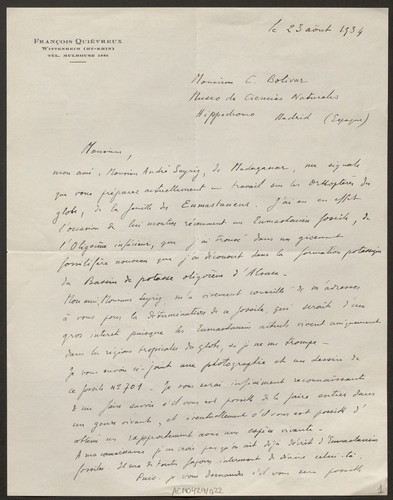 FRANÇOIS QUIÉVREUX
WITTENHEIM (HT-RHIN)
TÉL. MULHOUSE
le 23 août 1934
Monsieur C. Bolivar
Museo de Ciencias Naturales
Hippodromo Madrid (Espagne)
Monsieur,
mon ami, Monsieur André Seyrig, de Madagascar, me signale
que vous préparez actuellement un travail sur les Orthoptères du
globe, de la famille des Eumastaciens. J'ai eu en effet
l'occasion de lui montrer récemment un Eumastacien fossile, de
l'Oligocène inférieur, que j'ai trouvé dans un gisement
fossilifère nouveau que j'ai découvert dans la formation potassique
du Bassin de potasse oligocène d'Alsace.
Mon ami, Monsieur Seyrig, m'a vivement conseillé de m'adresser
à vous pour la détermination de ce fossile, qui serait d'un
gros intérêt puisque les Eumastaciens actuels vivent uniquement
dans les régions tropicales du globe, si je ne me trompe.
Je vous envoie ci-joint une photographie et un dessin de
ce fossile nº 701. Je vous serai infiniment reconnaissant
de me faire savoir s'il vous est possible de le faire entrer dans
un genre vivant, et éventuellement s'il vous est possible d'
obtenir un rapprochement avec une espèce vivante.
A ma connaissance je ne crois pas qu'on ait déjà décrit d'Eumastacien
fossile. Il me de toutes façons intéressant de décrire celui-là.
Puis-je vous demander s'il vous sera possible
ACN0429/022
1